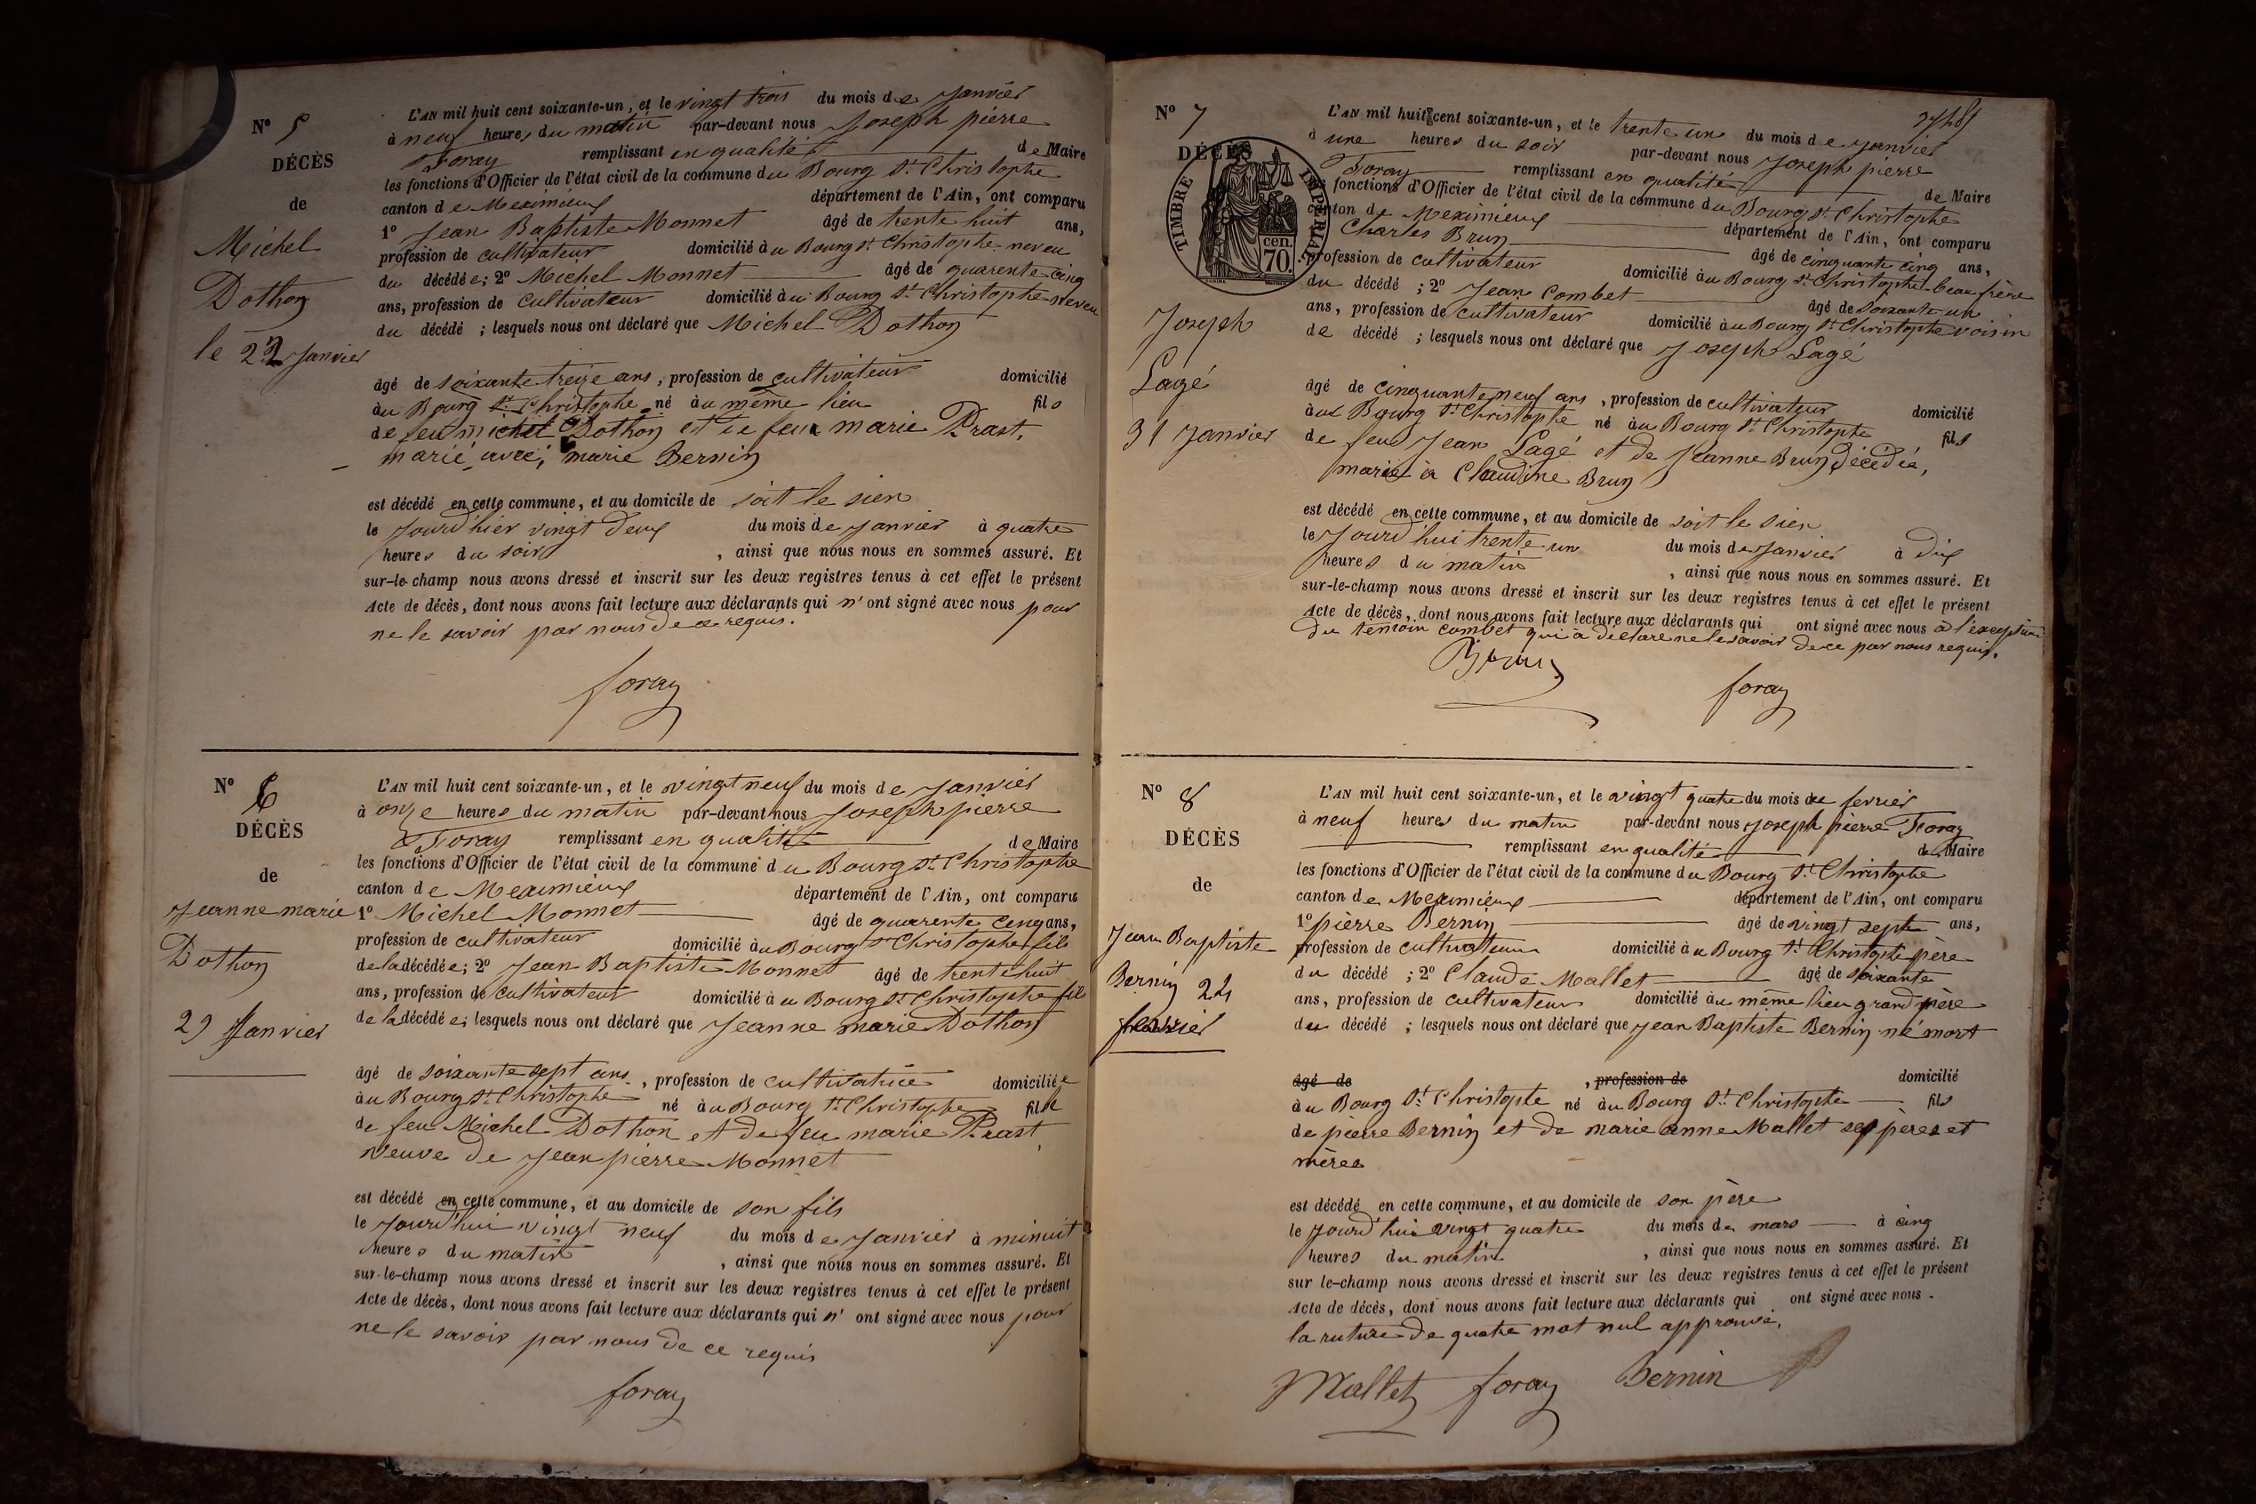 N° 5
DÉCÈS
de
Michel
Dothon
le 22 Janvier
L'AN mil huit cent soixante-un, et le vingt trois du mois de Janvier
à neuf heures du matin par-devant nous Joseph pierre
Foray remplissant en qualité de Maire
les fonctions d'Officier de l'état civil de la commune du Bourg St Christophe
canton de Meximieux département de l'Ain, ont comparu
1° Jean Baptiste Monnet âgé de trente huit ans,
profession de cultivateur domicilié àu Bourg St Christophe neveu
du décédé; 2° Michel Monnet âgé de quarente cinq
ans, profession de cultivateur domicilié àu Bourg St Christophe neveu
du décédé ; lesquels nous ont déclaré que Michel Dothon
âgé de soixante treize ans, profession de cultivateur domicilié
àu Bourg St Christophe né àu même lieu fils
de feu michel Dothon et de feu marie Prast.
marié avec, marie Bernin
est décédé en cette commune, et au domicile de soit le sien
le Jourd'hier vingt deux du mois de Janvier à quatre
heures du soir, ainsi que nous nous en sommes assuré. Et
sur-le-champ nous avons dressé et inscrit sur les deux registres tenus à cet effet le présent
Acte de décès, dont nous avons fait lecture aux déclarants qui n'ont signé avec nous pour
ne le savoir par nous de ce requis.
foray
N° 6
DÉCÈS
de
Jeanne marie
Dothon
29 Janvier
L'AN mil huit cent soixante-un, et le vingt neuf du mois de Janvier
à onze heures du matin par-devant nous Joseph pierre
Foray remplissant en qualité de Maire
les fonctions d'Officier de l'état civil de la commune du Bourg St Christophe
canton de Meximieux département de l'Ain, ont comparu
1° Michel Monnet âgé de quarente cinq ans,
profession de cultivateur domicilié àu Bourg St Christophe fils
de la décédée; 2° Jean Baptiste Monnet âgé de trente huit
ans, profession de cultivateur domicilié àu Bourg St Christophe fils
de la décédée; lesquels nous ont déclaré que Jeanne marie Dothon
âgé de soixante sept ans, profession de cultivatrice domiciliée
àu Bourg St Christophe né àu Bourg St Christophe fille
de feu Michel Dothon et de feu marie Prast
veuve de Jean pierre Monnet
est décédé en cette commune, et au domicile de son fils
le Jourd'hui vingt neuf du mois de Janvier à minuit
heures du matin, ainsi que nous nous en sommes assuré. Et
sur-le-champ nous avons dressé et inscrit sur les deux registres tenus à cet effet le présent
Acte de décès, dont nous avons fait lecture aux déclarants qui n'ont signé avec nous pour
ne le savoir par nous de ce requis
foray
N° 7
DÉCÈS
TIMBRE IMPÉRIAL
70 cen.
Joseph
Lagé
31 Janvier
L'AN mil huit cent soixante-un, et le trente un du mois de janvier
à une heures du soir par-devant nous Joseph pierre
Foray remplissant en qualité de Maire
fonctions d'Officier de l'état civil de la commune du Bourg St Christophe
canton de Meximieux département de l'Ain, ont comparu
Charles Brun âgé de cinquante cinq ans,
profession de cultivateur domicilié àu Bourg St Christophe beau frère
du décédé ; 2° Jean Combet âgé de soixante un
ans, profession de cultivateur domicilié àu Bourg St Christophe voisin
de décédé ; lesquels nous ont déclaré que Joseph Lagé
âgé de cinquante neuf ans, profession de cultivateur domicilié
àu Bourg St Christophe né àu Bourg St Christophe fils
de feu Jean Lagé et de Jeanne Brun décédée,
marié à Claudine Brun
est décédé en cette commune, et au domicile de soit le sien
le Jourd'hui trente un du mois de Janvier à dix
heures du matin, ainsi que nous nous en sommes assuré. Et
sur-le-champ nous avons dressé et inscrit sur les deux registres tenus à cet effet le présent
Acte de décès, dont nous avons fait lecture aux déclarants qui ont signé avec nous à l'exception
du témoin combet qui à déclaré ne le savoir de ce par nous requis.
Brun
foray
N° 8
DÉCÈS
de
Jean Baptiste
Bernin 24
fevrier
L'AN mil huit cent soixante-un, et le vingt quatre du mois de fevrier
à neuf heures du matin par-devant nous Joseph pierre Foray
remplissant en qualité de Maire
les fonctions d'Officier de l'état civil de la commune du Bourg St Christophe
canton de Meximieux département de l'Ain, ont comparu
1° pierre Bernin âgé de vingt sept ans,
profession de cultivateur domicilié àu Bourg St Christophe père
du décédé ; 2° Claude Mallet âgé de soixante
ans, profession de cultivateur domicilié àu même lieu grand père
du décédé ; lesquels nous ont déclaré que Jean Baptiste Bernin né mort
âgé de , profession de domicilié
àu Bourg St Christophe né àu Bourg St Christophe fils
de pierre Bernin et de marie anne Mallet ses pères et
mères
est décédé en cette commune, et au domicile de son père
le Jourd'hui vingt quatre du mois de mars à cinq
heures du matin, ainsi que nous nous en sommes assuré. Et
sur le-champ nous avons dressé et inscrit sur les deux registres tenus à cet effet le présent
Acte de décès, dont nous avons fait lecture aux déclarants qui ont signé avec nous.
la ruture de quatre mot nul approuvé.
Mallet foray Bernin